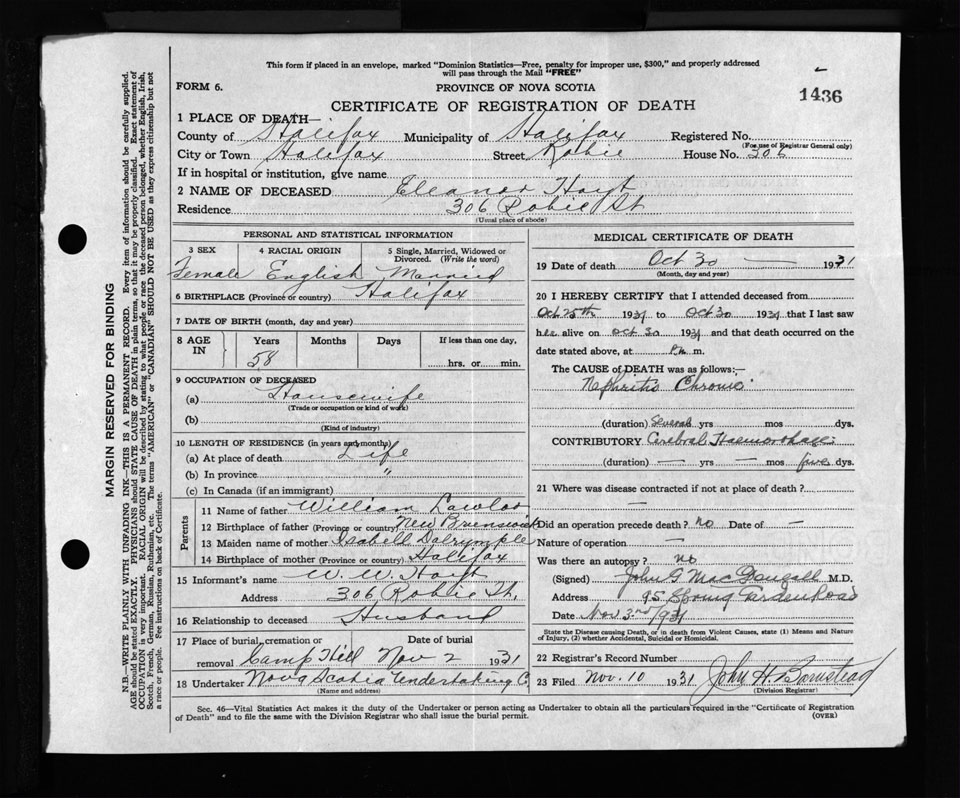 This form if placed in an envelope, marked "Dominion Statistics—Free, penalty for improper use, $300," and properly addressed
will pass through the Mail "FREE"
FORM 6.
PROVINCE OF NOVA SCOTIA
1436
CERTIFICATE OF REGISTRATION OF DEATH
1 PLACE OF DEATH—
County of Halifax Municipality of Halifax Registered No.
(For use of Registrar General only)
City or Town Halifax Street Robie House No. 306
If in hospital or institution, give name
2 NAME OF DECEASED Eleanor Hoyt
Residence 306 Robie St
(Usual place of abode)
PERSONAL AND STATISTICAL INFORMATION
3 SEX 4 RACIAL ORIGIN 5 Single, Married, Widowed or
Divorced. (Write the word)
Female English Married
6 BIRTHPLACE (Province or country) Halifax
7 DATE OF BIRTH (month, day and year)
8 AGE IN Years Months Days If less than one day,
58 hrs. or min.
9 OCCUPATION OF DECEASED
(a) Housewife
(Trade or occupation or kind of work)
(b)
(Kind of industry)
10 LENGTH OF RESIDENCE (in years and months)
(a) At place of death Life
(b) In province "
(c) In Canada (if an immigrant)
Parents
11 Name of father William Lawlor
12 Birthplace of father (Province or country) New Brunswick
13 Maiden name of mother Isabell Dalrymple
14 Birthplace of mother (Province or country) Halifax
15 Informant's name W. W. Hoyt
Address 306 Robie St.
16 Relationship to deceased Husband
17 Place of burial, cremation or Date of burial
removal Camp Hill Nov 2 1931
18 Undertaker Nova Scotia Undertaking C
(Name and address)
MEDICAL CERTIFICATE OF DEATH
19 Date of death Oct 30 — 1931
(Month, day and year)
20 I HEREBY CERTIFY that I attended deceased from
Oct 25th 1931 to Oct 30 1931 that I last saw
her alive on Oct 30 1931 and that death occurred on
date stated above, at P.M. m.
The CAUSE of DEATH was as follows:—
Nephritis Chronic
(duration) Several yrs mos dys.
CONTRIBUTORY Cerebral Haemorrhage
(duration) — yrs — mos five dys.
21 Where was disease contracted if not at place of death?
—
Did an operation precede death? no Date of —
Nature of operation —
Was there an autopsy? no
(Signed) John G MacDougall M.D.
Address 95 Spring Garden Road
Date Nov 3rd/931
State the Disease causing Death, or in death from Violent Causes, state (1) Means and Nature
of Injury, (2) whether Accidental, Suicidal or Homicidal.
22 Registrar's Record Number
23 Filed Nov. 10 1931 John H. Barnstead
(Division Registrar)
Sec. 46—Vital Statistics Act makes it the duty of the Undertaker or person acting as Undertaker to obtain all the particulars required in the "Certificate of Registration
of Death" and to file the same with the Division Registrar who shall issue the burial permit. (OVER)
MARGIN RESERVED FOR BINDING
N.B.—WRITE PLAINLY WITH UNFADING INK—THIS IS A PERMANENT RECORD. Every item of information should be carefully supplied.
AGE should be stated EXACTLY. PHYSICIANS should STATE CAUSE OF DEATH in plain terms, so that it may be properly classified. Exact statement of
OCCUPATION is very important. RACIAL ORIGIN will be described by stating to what people or race the deceased person belonged, whether English, Irish,
Scotch, French, German, Russian, Ruthenian, etc. The terms "AMERICAN" or "CANADIAN" SHOULD NOT BE USED as they express citizenship but not
a race or people. See instructions on back of Certificate.